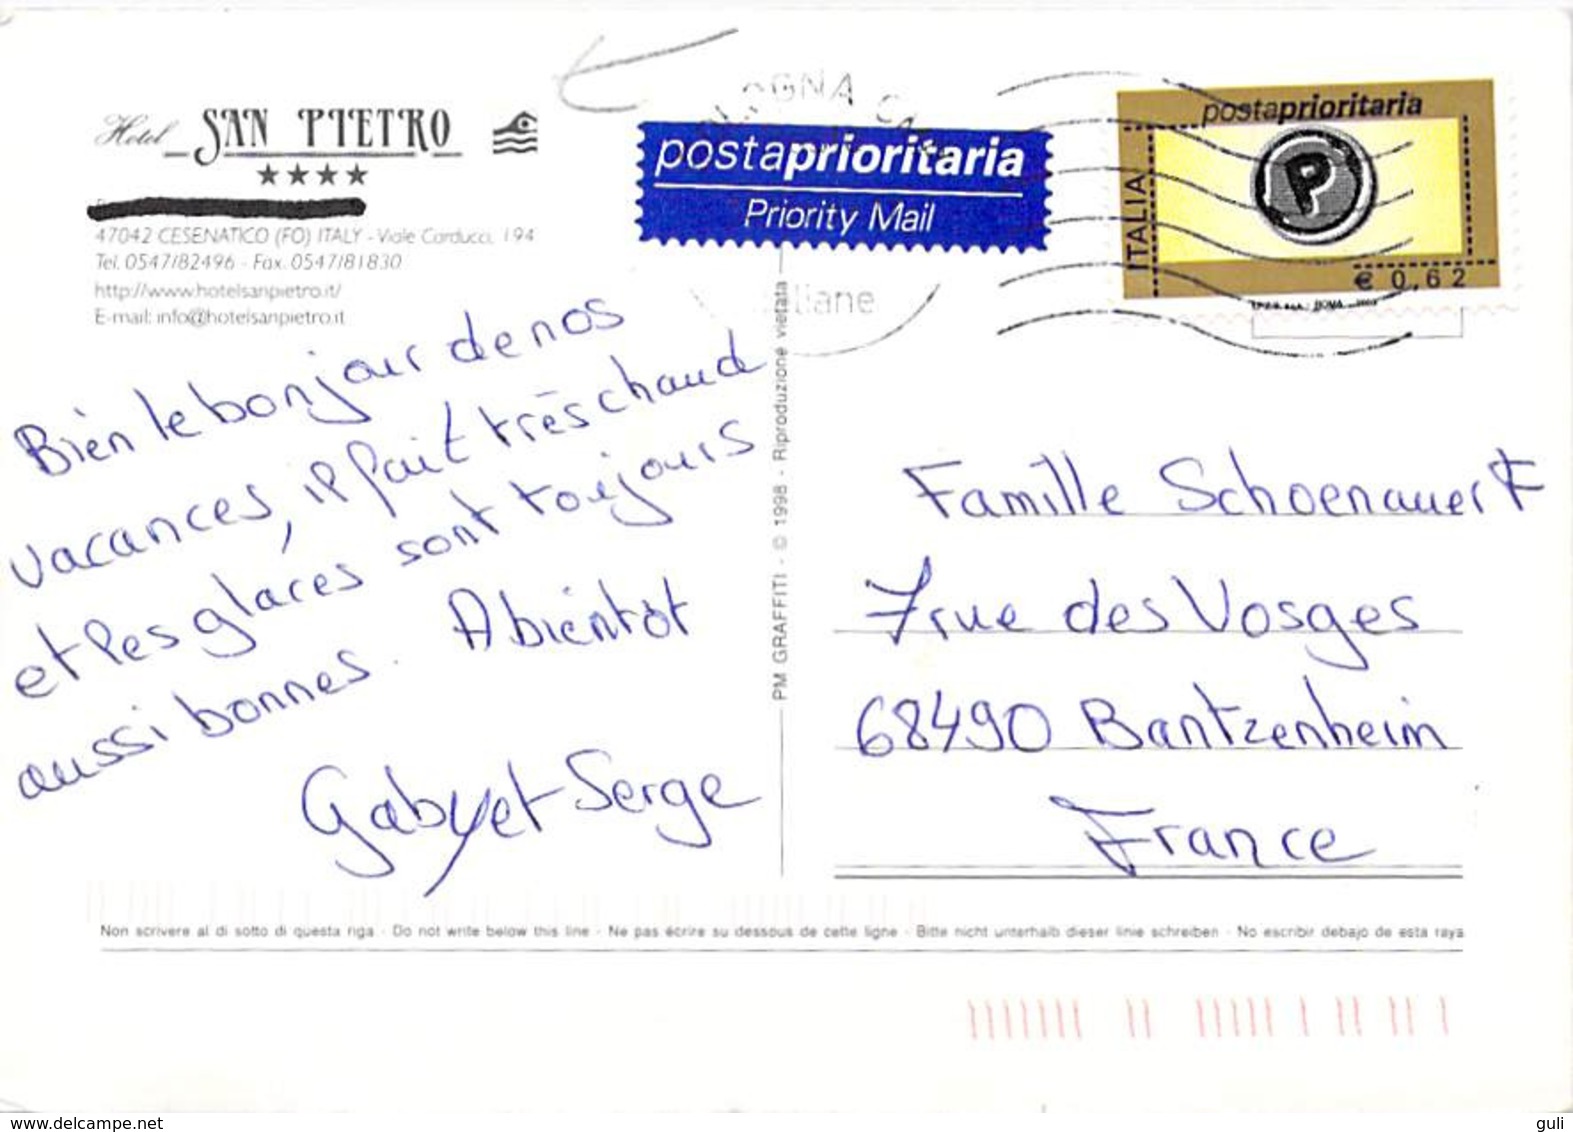 Hotel SAN PIETRO
47042 CESENATICO (FO) ITALY - Viale Carducci, 194
Tel. 0547/82496 - Fax. 0547/81830
http://www.hotelsanpietro.it/
E-mail: info@hotelsanpietro.it
postaprioritaria
Priority Mail
postaprioritaria
P
ITALIA
€ 0,62
ROMA
liane
Bien le bonjour de nos
vacances, il fait très chaud
et les glaces sont toujours
aussi bonnes. A bientot
Gaby et Serge
PM GRAFFITI - © 1998 - Riproduzione vietata
Famille Schoenauer F
7 rue des Vosges
68490 Bantzenheim
France
Non scrivere al di sotto di questa riga - Do not write below this line - Ne pas écrire su dessous de cette ligne - Bitte nicht unterhalb dieser linie schreiben - No escribir debajo de esta raya
delcampe.net
guli